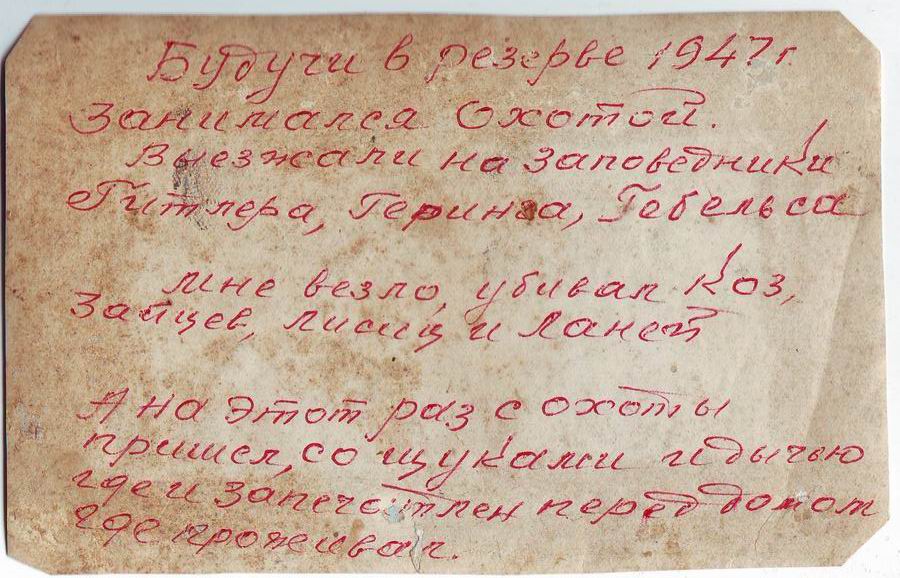 Будучи в резерве 1947 г
Занимался Охотой.
Выезжали на заповедники
Гитлера, Геринга, Гебельса
мне везло, убивал коз,
Зайцев, лисиц и Ланей
А на этот раз с охоты
пришел, со щуками и дичью
где и запечетлен перед домом
где проживал.